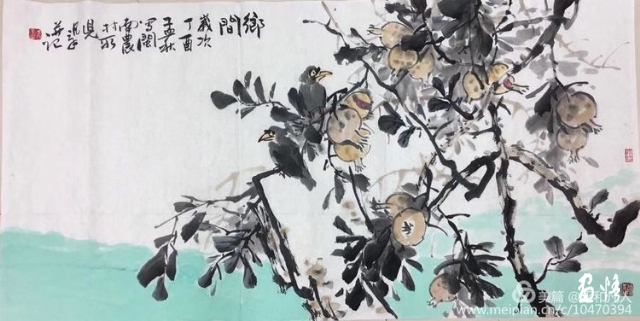 鄉間
歲次
丁酉
孟秋
寫閩
南農
村所
見
并记
美篇
www.meipian.cn/c/10470394